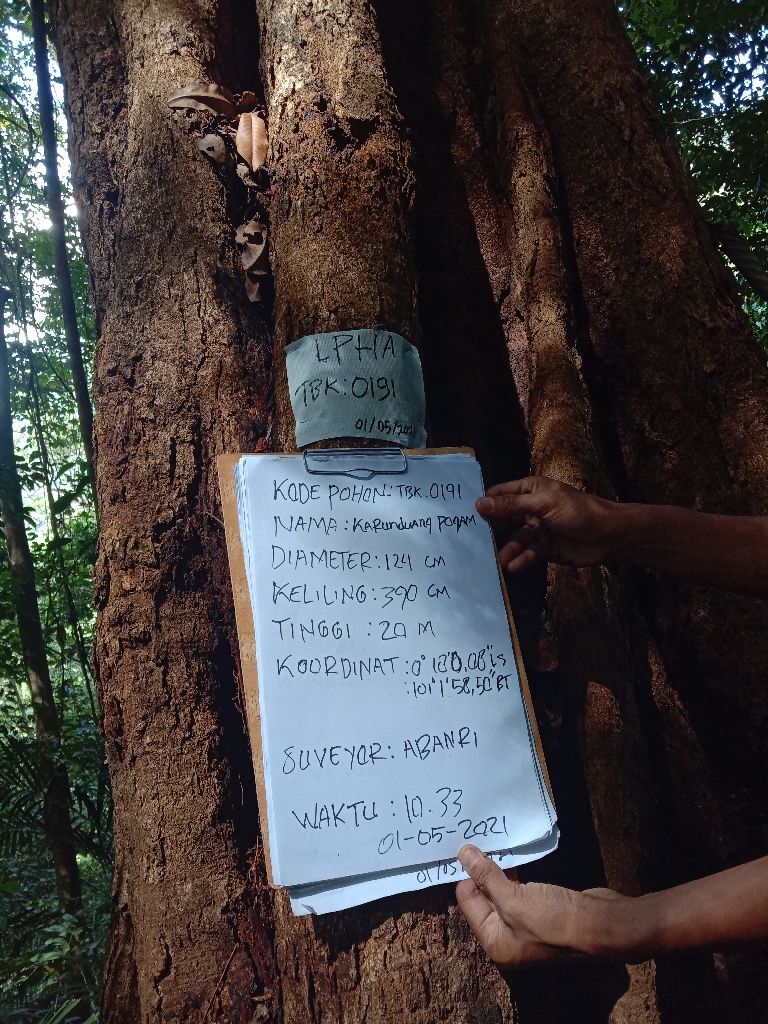 LPHA
TBK:0191
01/05/2021
KODE POHON: TBK.0191
NAMA : KARUNDUANG POGAM
DIAMETER: 124 CM
KELILING: 390 CM
TINGGI : 20 M
KOORDINAT : 0° 10'0,08" LS
: 101° 1' 58,50" BT
SUVEYOR: ABANRI
WAKTU : 10.33
01-05-2021
01/05